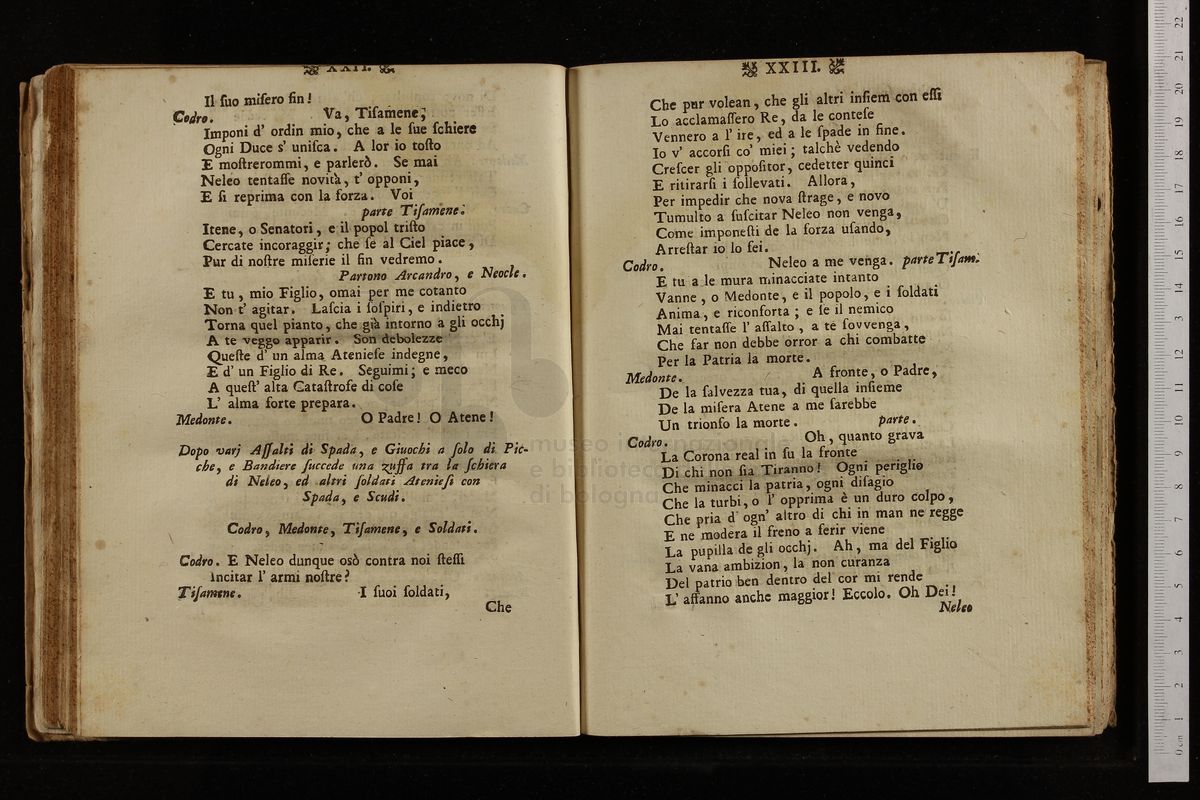 XXII.
Il ſuo miſero fin!
Codro. Va, Tiſamene;
Imponi d' ordin mio, che a le ſue ſchiere
Ogni Duce s' uniſca. A lor io toſto
E moſtrerommi, e parlerò. Se mai
Neleo tentaſſe novità, t' opponi,
E ſi reprima con la forza. Voi
parte Tiſamene.
Itene, o Senatori, e il popol triſto
Cercate incoraggir; che ſe al Ciel piace,
Pur di noſtre miſerie il fin vedremo.
Partono Arcandro, e Neocle.
E tu, mio Figlio, omai per me cotanto
Non t' agitar. Laſcia i ſoſpiri, e indietro
Torna quel pianto, che già intorno a gli occhj
A te veggo apparir. Son debolezze
Queſte d' un alma Atenieſe indegne,
E d' un Figlio di Re. Seguimi; e meco
A queſt' alta Cataſtrofe di coſe
L' alma forte prepara.
Medonte. O Padre! O Atene!
Dopo varj Aſſalti di Spada, e Giuochi a ſolo di Pic-
che, e Bandiere ſuccede una zuffa tra la ſchiera
di Neleo, ed altri ſoldati Atenieſi con
Spada, e Scudi.
Codro, Medonte, Tiſamene, e Soldati.
Codro. E Neleo dunque osò contra noi ſteſſi
Incitar l' armi noſtre?
Tiſamene. I ſuoi ſoldati,
Che
XXIII.
Che pur volean, che gli altri inſiem con eſſi
Lo acclamaſſero Re, da le conteſe
Vennero a l' ire, ed a le ſpade in fine.
Io v' accorſi co' miei; talchè vedendo
Creſcer gli oppoſitor, cedetter quinci
E ritirarſi i ſollevati. Allora,
Per impedir che nova ſtrage, e novo
Tumulto a ſuſcitar Neleo non venga,
Come imponeſti de la forza uſando,
Arreſtar io lo fei.
Codro. Neleo a me venga. parte Tiſam.
E tu a le mura minacciate intanto
Vanne, o Medonte, e il popolo, e i ſoldati
Anima, e riconforta; e ſe il nemico
Mai tentaſſe l' aſſalto, a te ſovvenga,
Che far non debbe orror a chi combatte
Per la Patria la morte.
Medonte. A fronte, o Padre,
De la ſalvezza tua, di quella inſieme
De la miſera Atene a me ſarebbe
Un trionfo la morte. parte.
Codro. Oh, quanto grava
La Corona real in ſu la fronte
Di chi non ſia Tiranno! Ogni periglio
Che minacci la patria, ogni diſagio
Che la turbi, o l' opprima è un duro colpo,
Che pria d' ogn' altro di chi in man ne regge
E ne modera il freno a ferir viene
La pupilla de gli occhj. Ah, ma del Figlio
La vana ambizion, la non curanza
Del patrio ben dentro del cor mi rende
L' affanno anche maggior! Eccolo. Oh Dei!
Neleo
museo internazionale
e biblioteca
di bologna